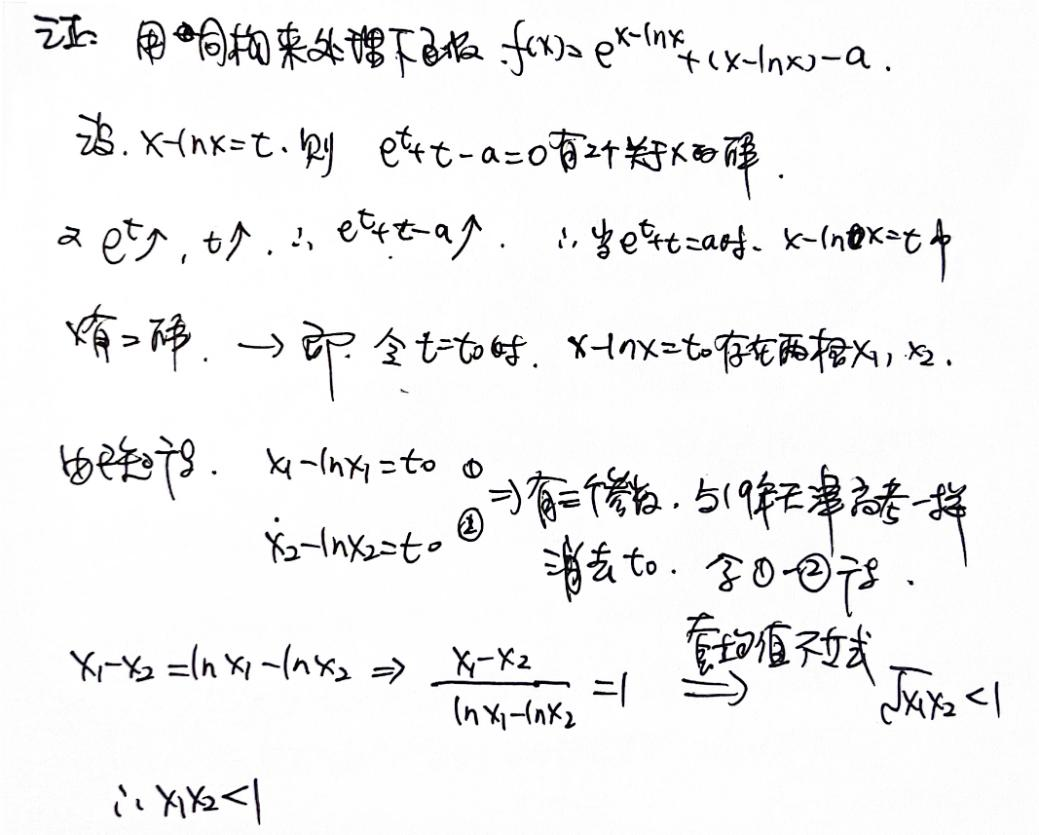 证: 用同构来处理下函数. f(x)= e^{x-lnx}+(x-lnx)-a.
设. x-lnx=t. 则 e^t+t-a=0有2个关于x的解.
又 e^t↑, t↑. ∴ e^t+t-a↑. ∴ 当e^t+t=a时. x-lnx=t中
x有二解. → 即. 令t=t₀时. x-lnx=t₀存在两根x₁, x₂.
由题可得. x₁-lnx₁=t₀ ①
x₂-lnx₂=t₀ ②
⇒有三个参数. 与19年天津高考一样
消去t₀. 令①-②可得.
x₁-x₂=lnx₁-lnx₂ ⇒ \frac{x₁-x₂}{lnx₁-lnx₂}=1 套均值不等式 ⇒ √x₁x₂<1
∴ x₁x₂<1